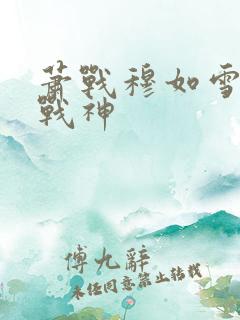 蕭戰穆如雪
戰神
傅九辭
未经同意禁止转载